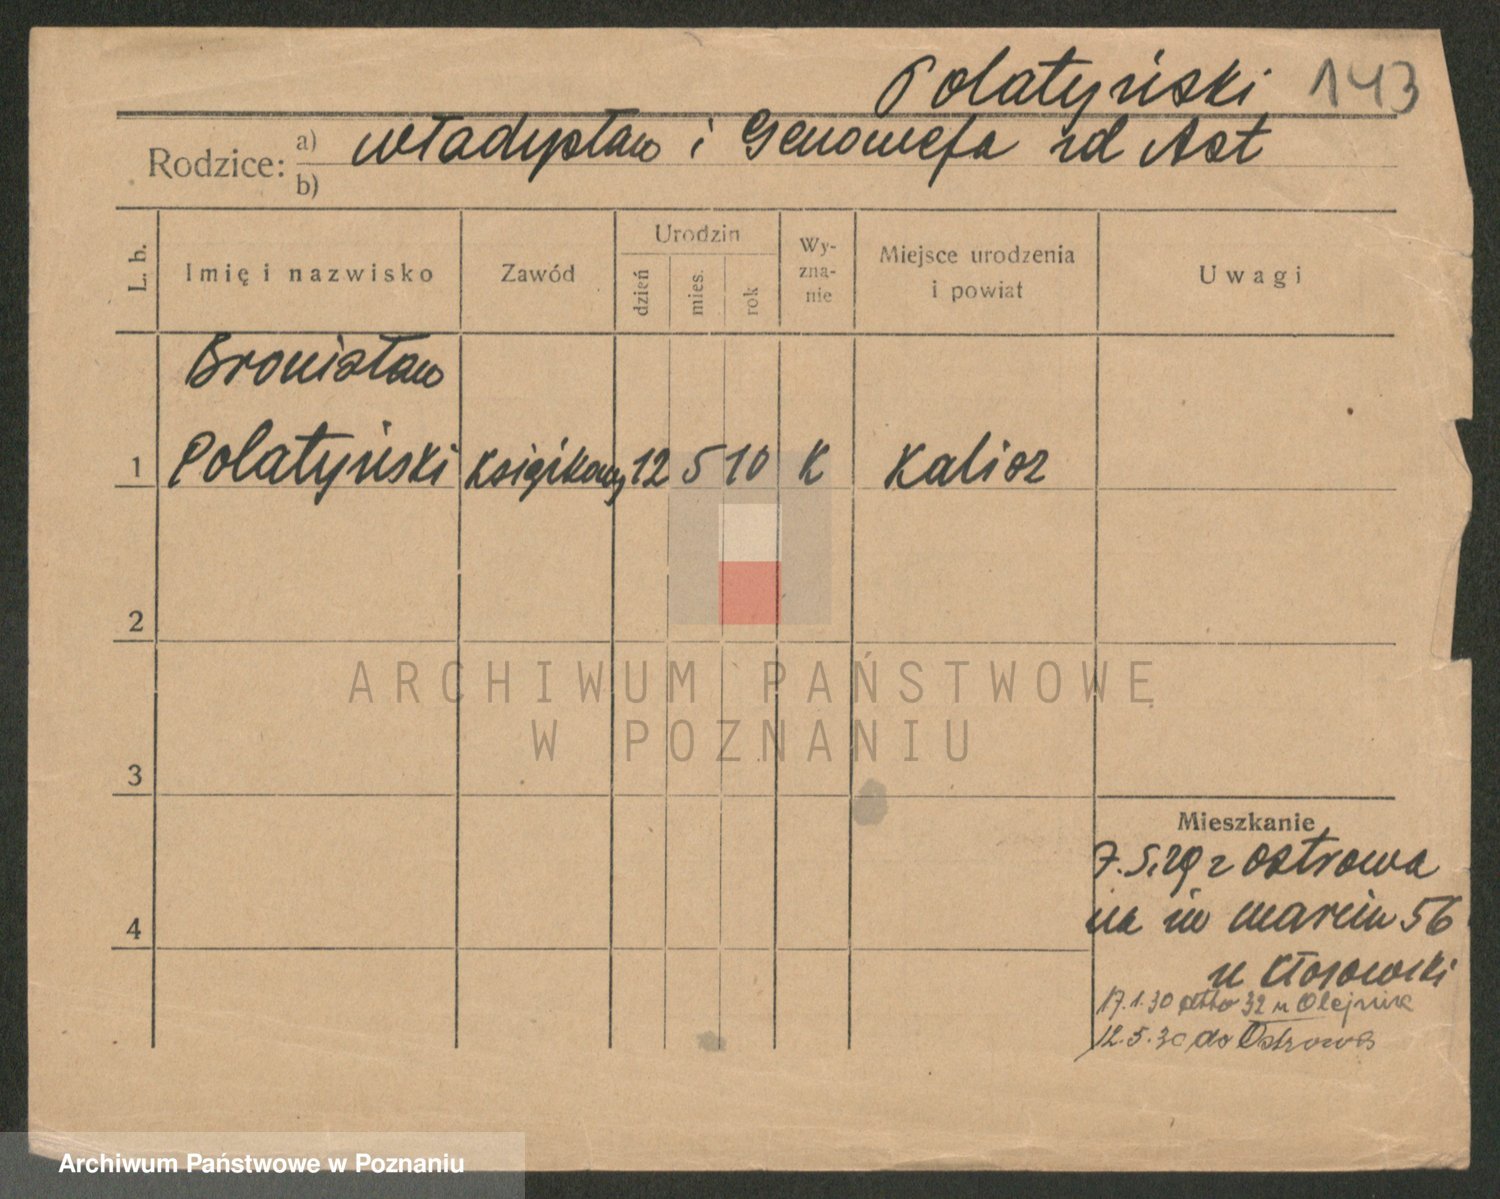 Polatyński 143
Rodzice: a) Władysław i Genowefa rd Ast
b)
L. b. Imię i nazwisko Zawód Urodzin dzień mies. rok Wy-zna-nie Miejsce urodzenia i powiat Uwagi
Bronisław
1 Polatyński Księgikowy 12 5 10 K Kalisz
2
3
4
Mieszkanie
7.5.29 z Ostrowa
na św marcin 56
u Kłosowski
17.1.30 ditto 32 u Olejnik
12.5.30 do Ostrowa
ARCHIWUM PAŃSTWOWE
W POZNANIU
Archiwum Państwowe w Poznaniu